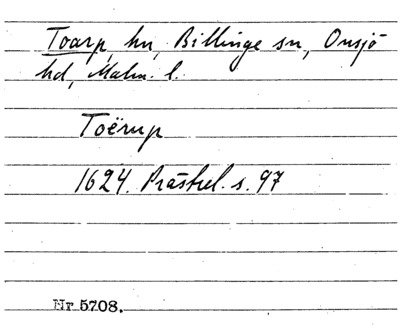 Toarp, hn, Billinge sn, Onsjö
hd, Malm. l.
Toërup
1624. Prästrel. s. 97
Nr 5708.